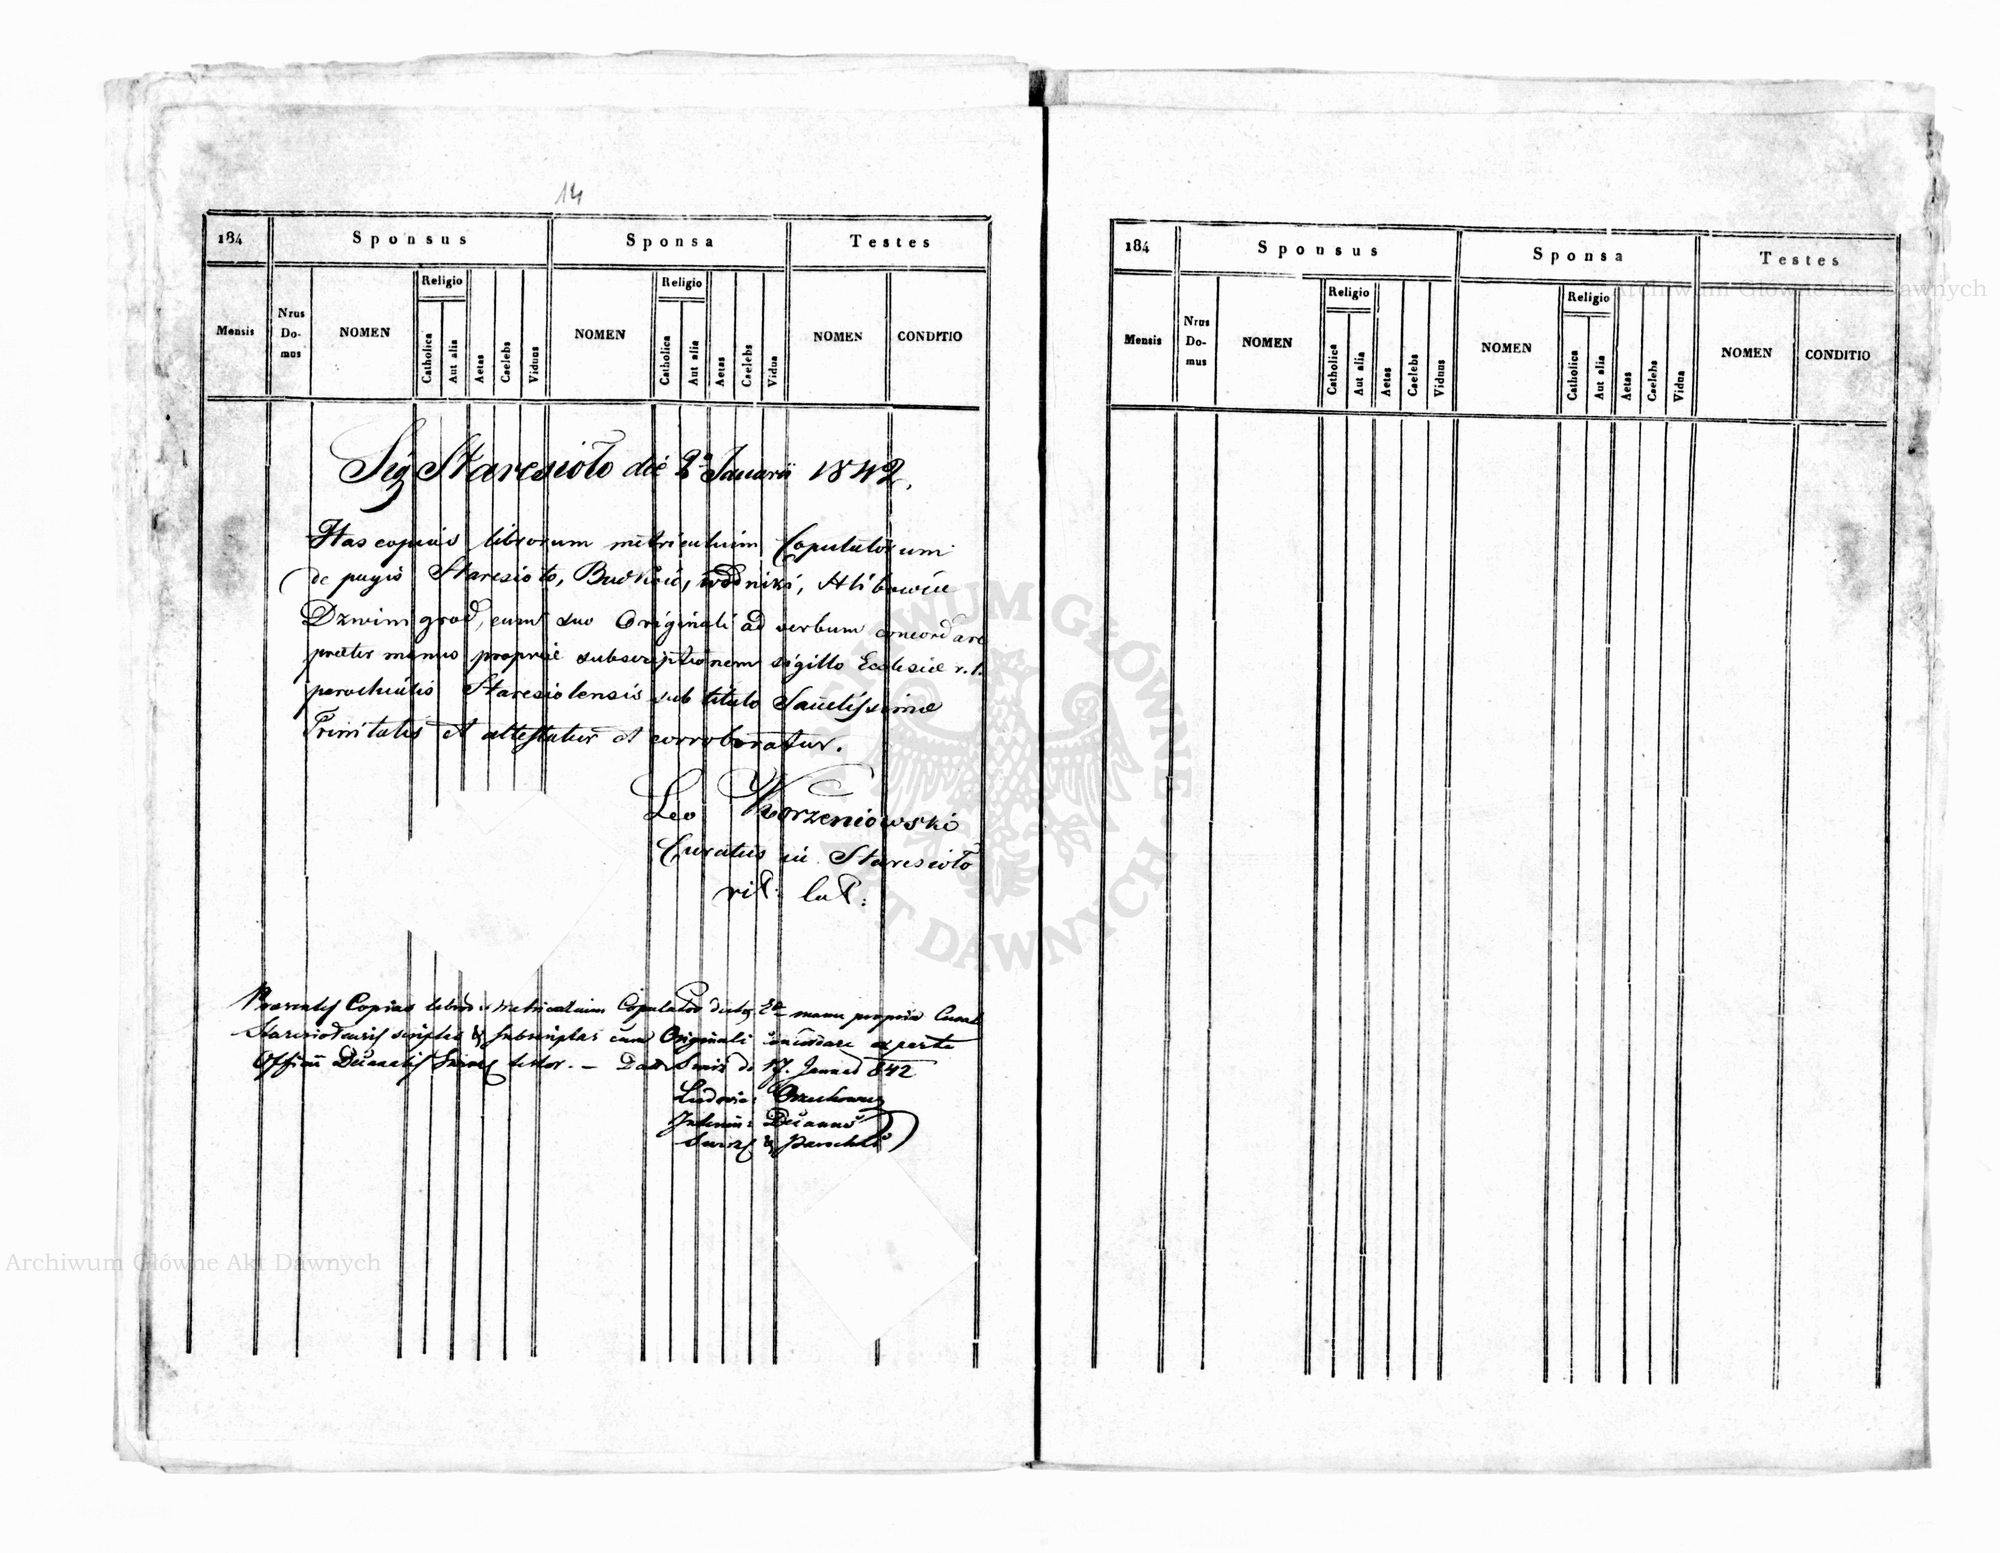 14
184 Sponsus Sponsa Testes
Mensis Nrus Do-mus NOMEN Religio Catholica Aut alia Aetas Caelebs Viduus NOMEN Religio Catholica Aut alia Aetas Caelebs Vidua NOMEN CONDITIO
Sig Staresioło die 2ª Januarii 1842.
Has copias librorum metricalium Copulatorum
de pagis Staresioło, Budków, Wodniki, Hlibowice
Dzwinigrod, cum suo Originali ad verbum concordare
præter manus propriæ subscriptionem sigillo Ecclesiæ r. l.
parochialis Staresiolensis sub titulo Sanctissimæ
Trinitatis et attestatur et corroboratur.
Leo Korzeniowski
Curatus in Staresioło
rit: lat:
Praesentes Copias manu propria Curati
Staresiolensis scriptas & subscriptas cum Originali concordare ex parte
Officii Decanalis testor. — 17. Januarii 842
Ludovic:
Interim: Decanus
& Parochus
184 Sponsus Sponsa Testes
Mensis Nrus Do-mus NOMEN Religio Catholica Aut alia Aetas Caelebs Viduus NOMEN Religio Catholica Aut alia Aetas Caelebs Vidua NOMEN CONDITIO
ARCHIWUM GŁÓWNE AKT DAWNYCH
Archiwum Główne Akt Dawnych
Archiwum Główne Akt Dawnych